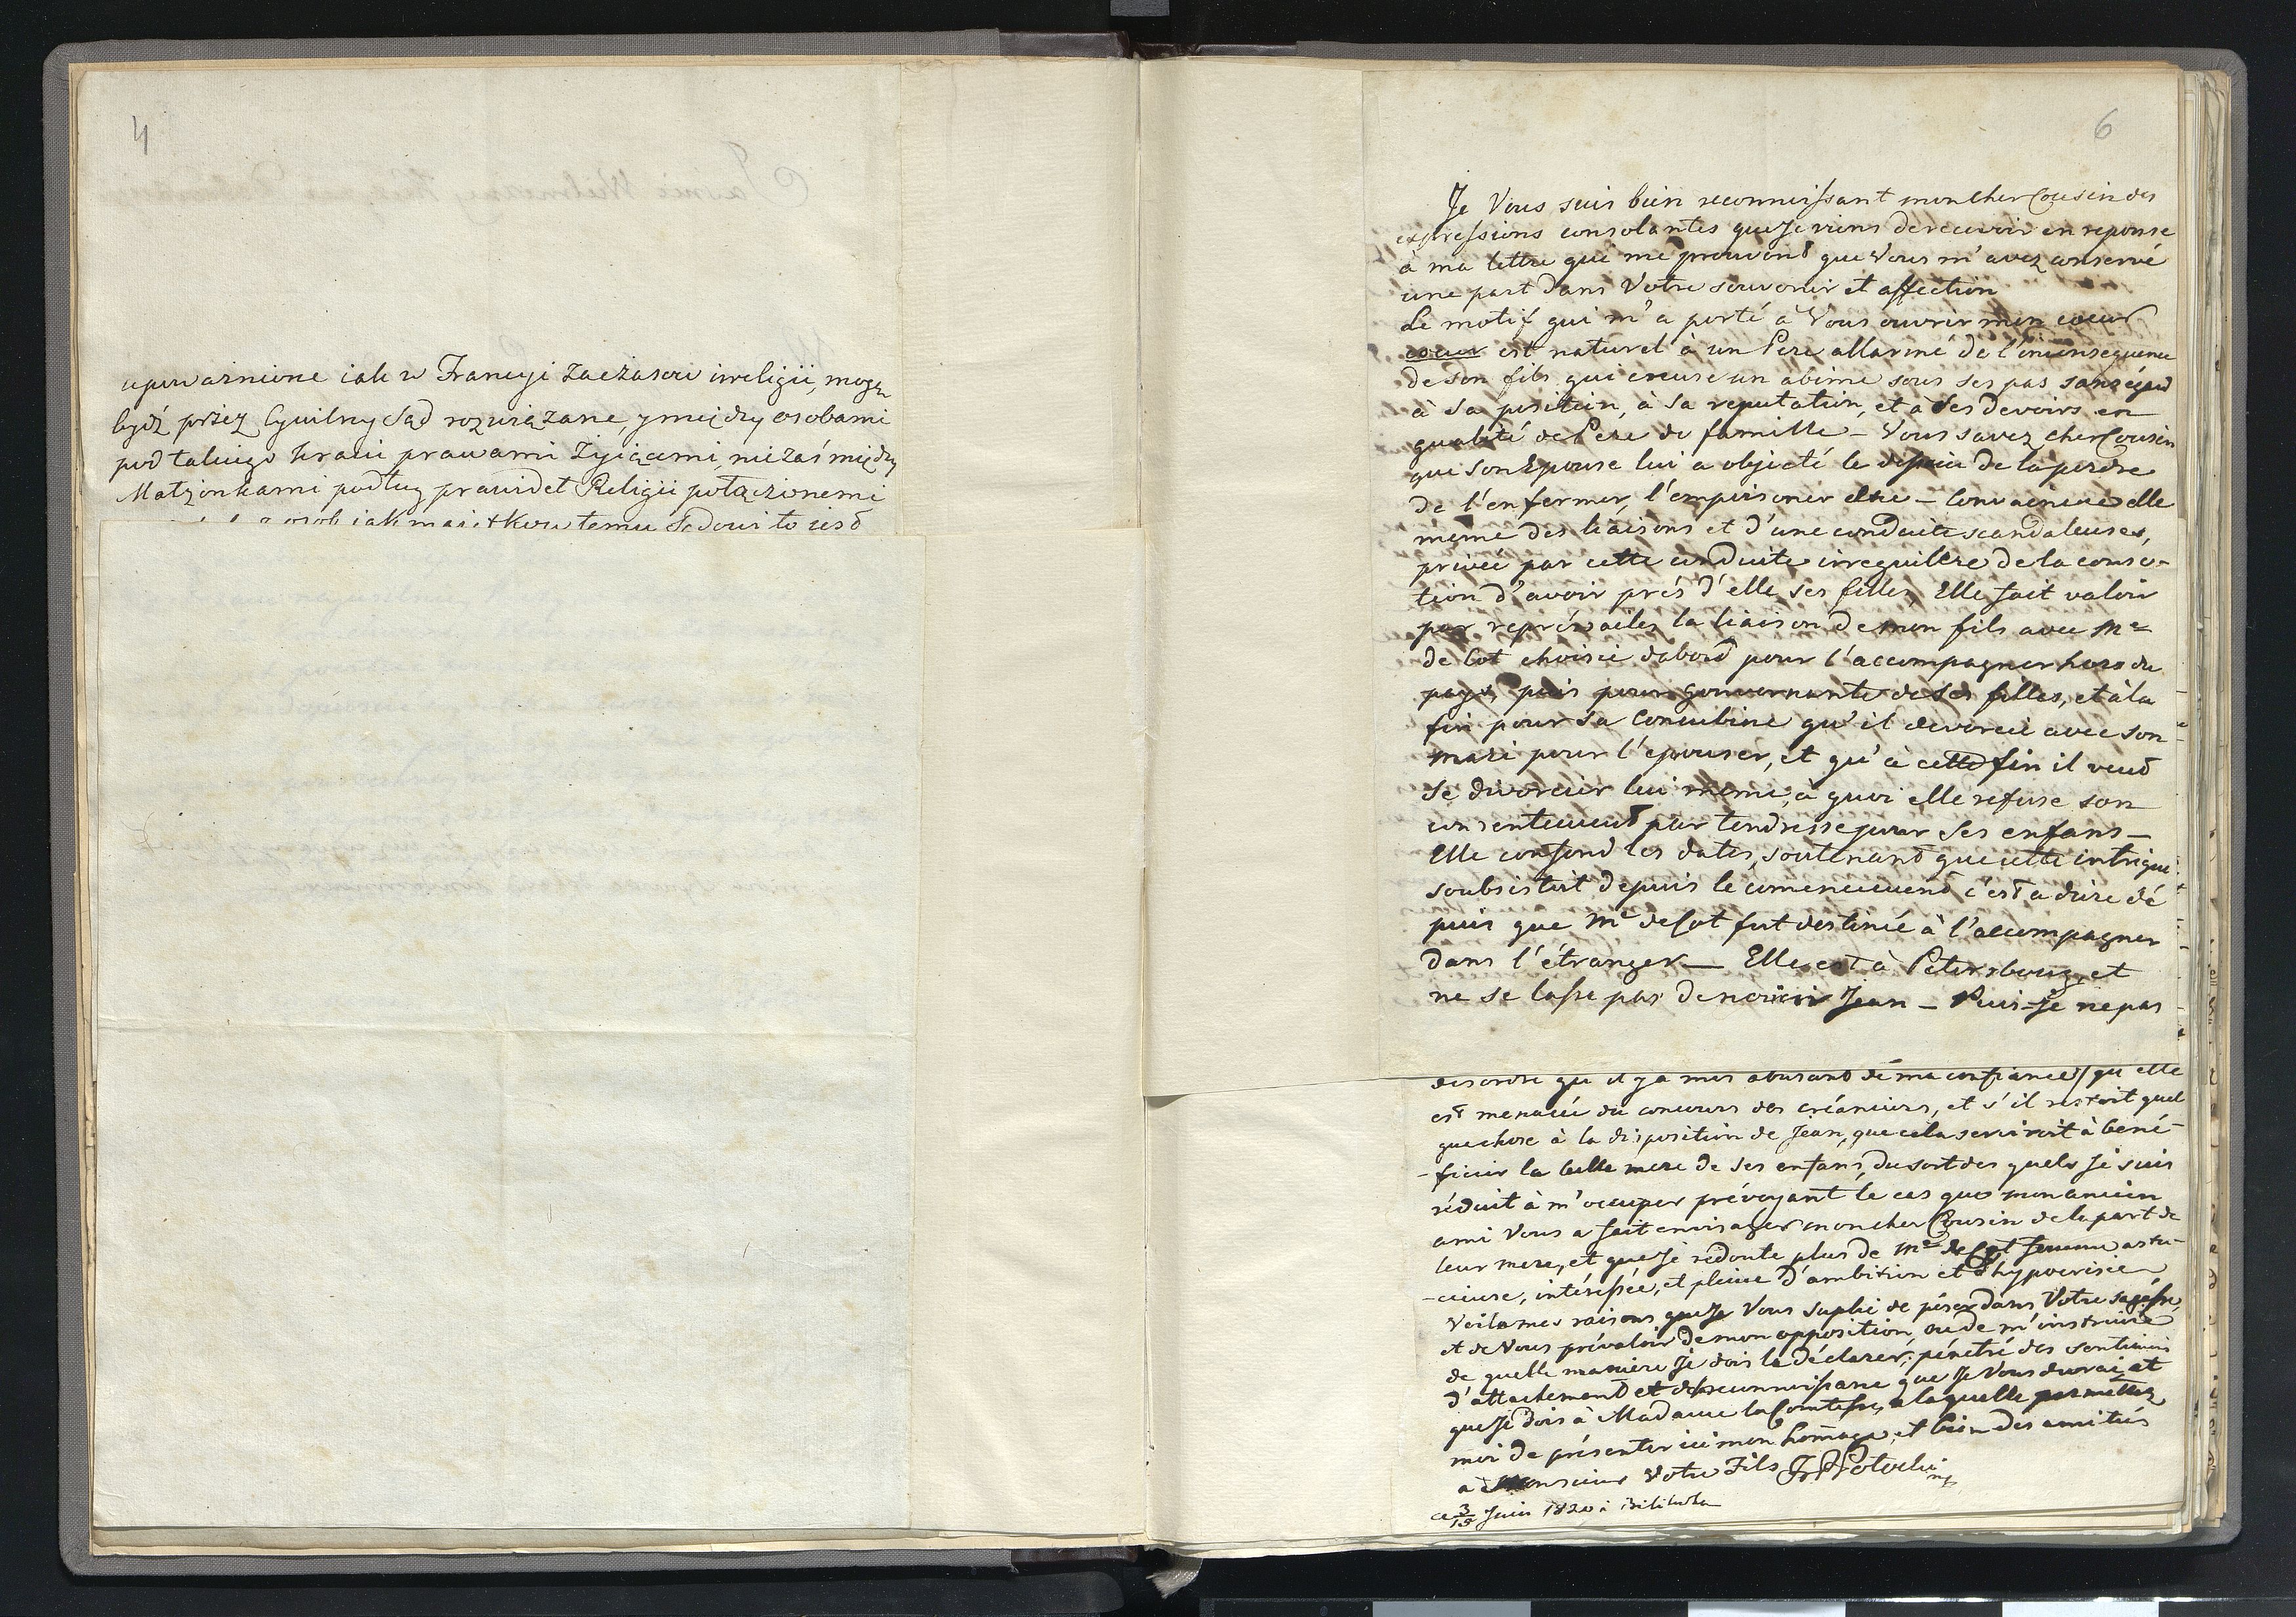 4
upoważnione iak w Francyi zaczasow irreligii, mogą
bydź przez Cywilny Sąd rozwiązane, y między osobami
pod takiego kraiu prawami żyiącemi, nie zaś między
Małżonkami podług prawideł Religii połączonemi
osob iak maiątkow temu Sądowi to iest
6
Je Vous suis bien reconnoissant mon cher Cousin des
expressions consolantes que Je viens de recevoir en reponse
à ma lettre qui me prouvent que Vous m'avez conservé
une part dans Votre souvenir et affection
Le motif qui m'a porté à Vous ouvrir mon coeur
coeur est naturel à un Pere allarmé de l'inconsequence
de son fils qui creuse un abime sous ses pas sans égard
à sa position, à sa reputation, et à ses devoirs en
qualité de Pere de famille – Vous savez cher Cousin
que son Epouse lui a objecté le dessein de la perdre
de l'enfermer, l'empoisoner etc – Convaincue elle
même des liaisons et d'une conduite scandaleuses,
privée par cette conduite irreguilere de la conso-
tion d'avoir près d'elle ses filles, Elle fait valoir
par représailes la liaison de mon fils avec Me
de Cot choisie dabord pour l'accompagner hors du
pays, puis pour gouvernante de ses filles, et à la
fin pour sa Concubine qu'il devorcie avec son
mari pour l'epouser, et qu'à cette fin il veut
se divorcier lui meme, à quoi elle refuse son
consentement par tendresse pour ses enfans –
Elle confond les dates, soutenant que cette intrigue
soubsistoit depuis le comencement c'est a dire dé
puis que Me de Cot fut destinée à l'accompagner
dans l'étranger – Elle est à Petersbourg, et
ne se lasse pas de noircir Jean – Puis-Je ne pas
desordre qu'il y a mis abusant de ma confiance) qu'elle
est menacée du concours des créanciers, et s'il restoit quel
que chose à la disposition de Jean, que cela serviroit à béné-
-ficier la belle mere de ses enfans, du sort des quels Je suis
réduit à m'occuper prévoyant le cas que mon ancien
ami Vous a fait envisager mon cher Cousin de la part de
leur mere, et que Je rédoute plus de Me de Cot femme astu-
-cieuse, intéressée, et pleine d'ambition et d'hypocrisie
Voila mes raisons que Je Vous suplie de péser dans Votre sagesse,
et de Vous prévaloir de mon opposition, ou de m'instruire
de quelle maniere Je dois la déclarer; pénétré des sentimens
d'attachement et de reconnoissance que Je Vous devrai, et
que Je dois à Madame la Comtesse, a laquelle permettez
moi de présenter ici mon homage, et bien des amitiés
a Monsieur Votre Fils Potocki
ce 3/15 Juin 1820 à